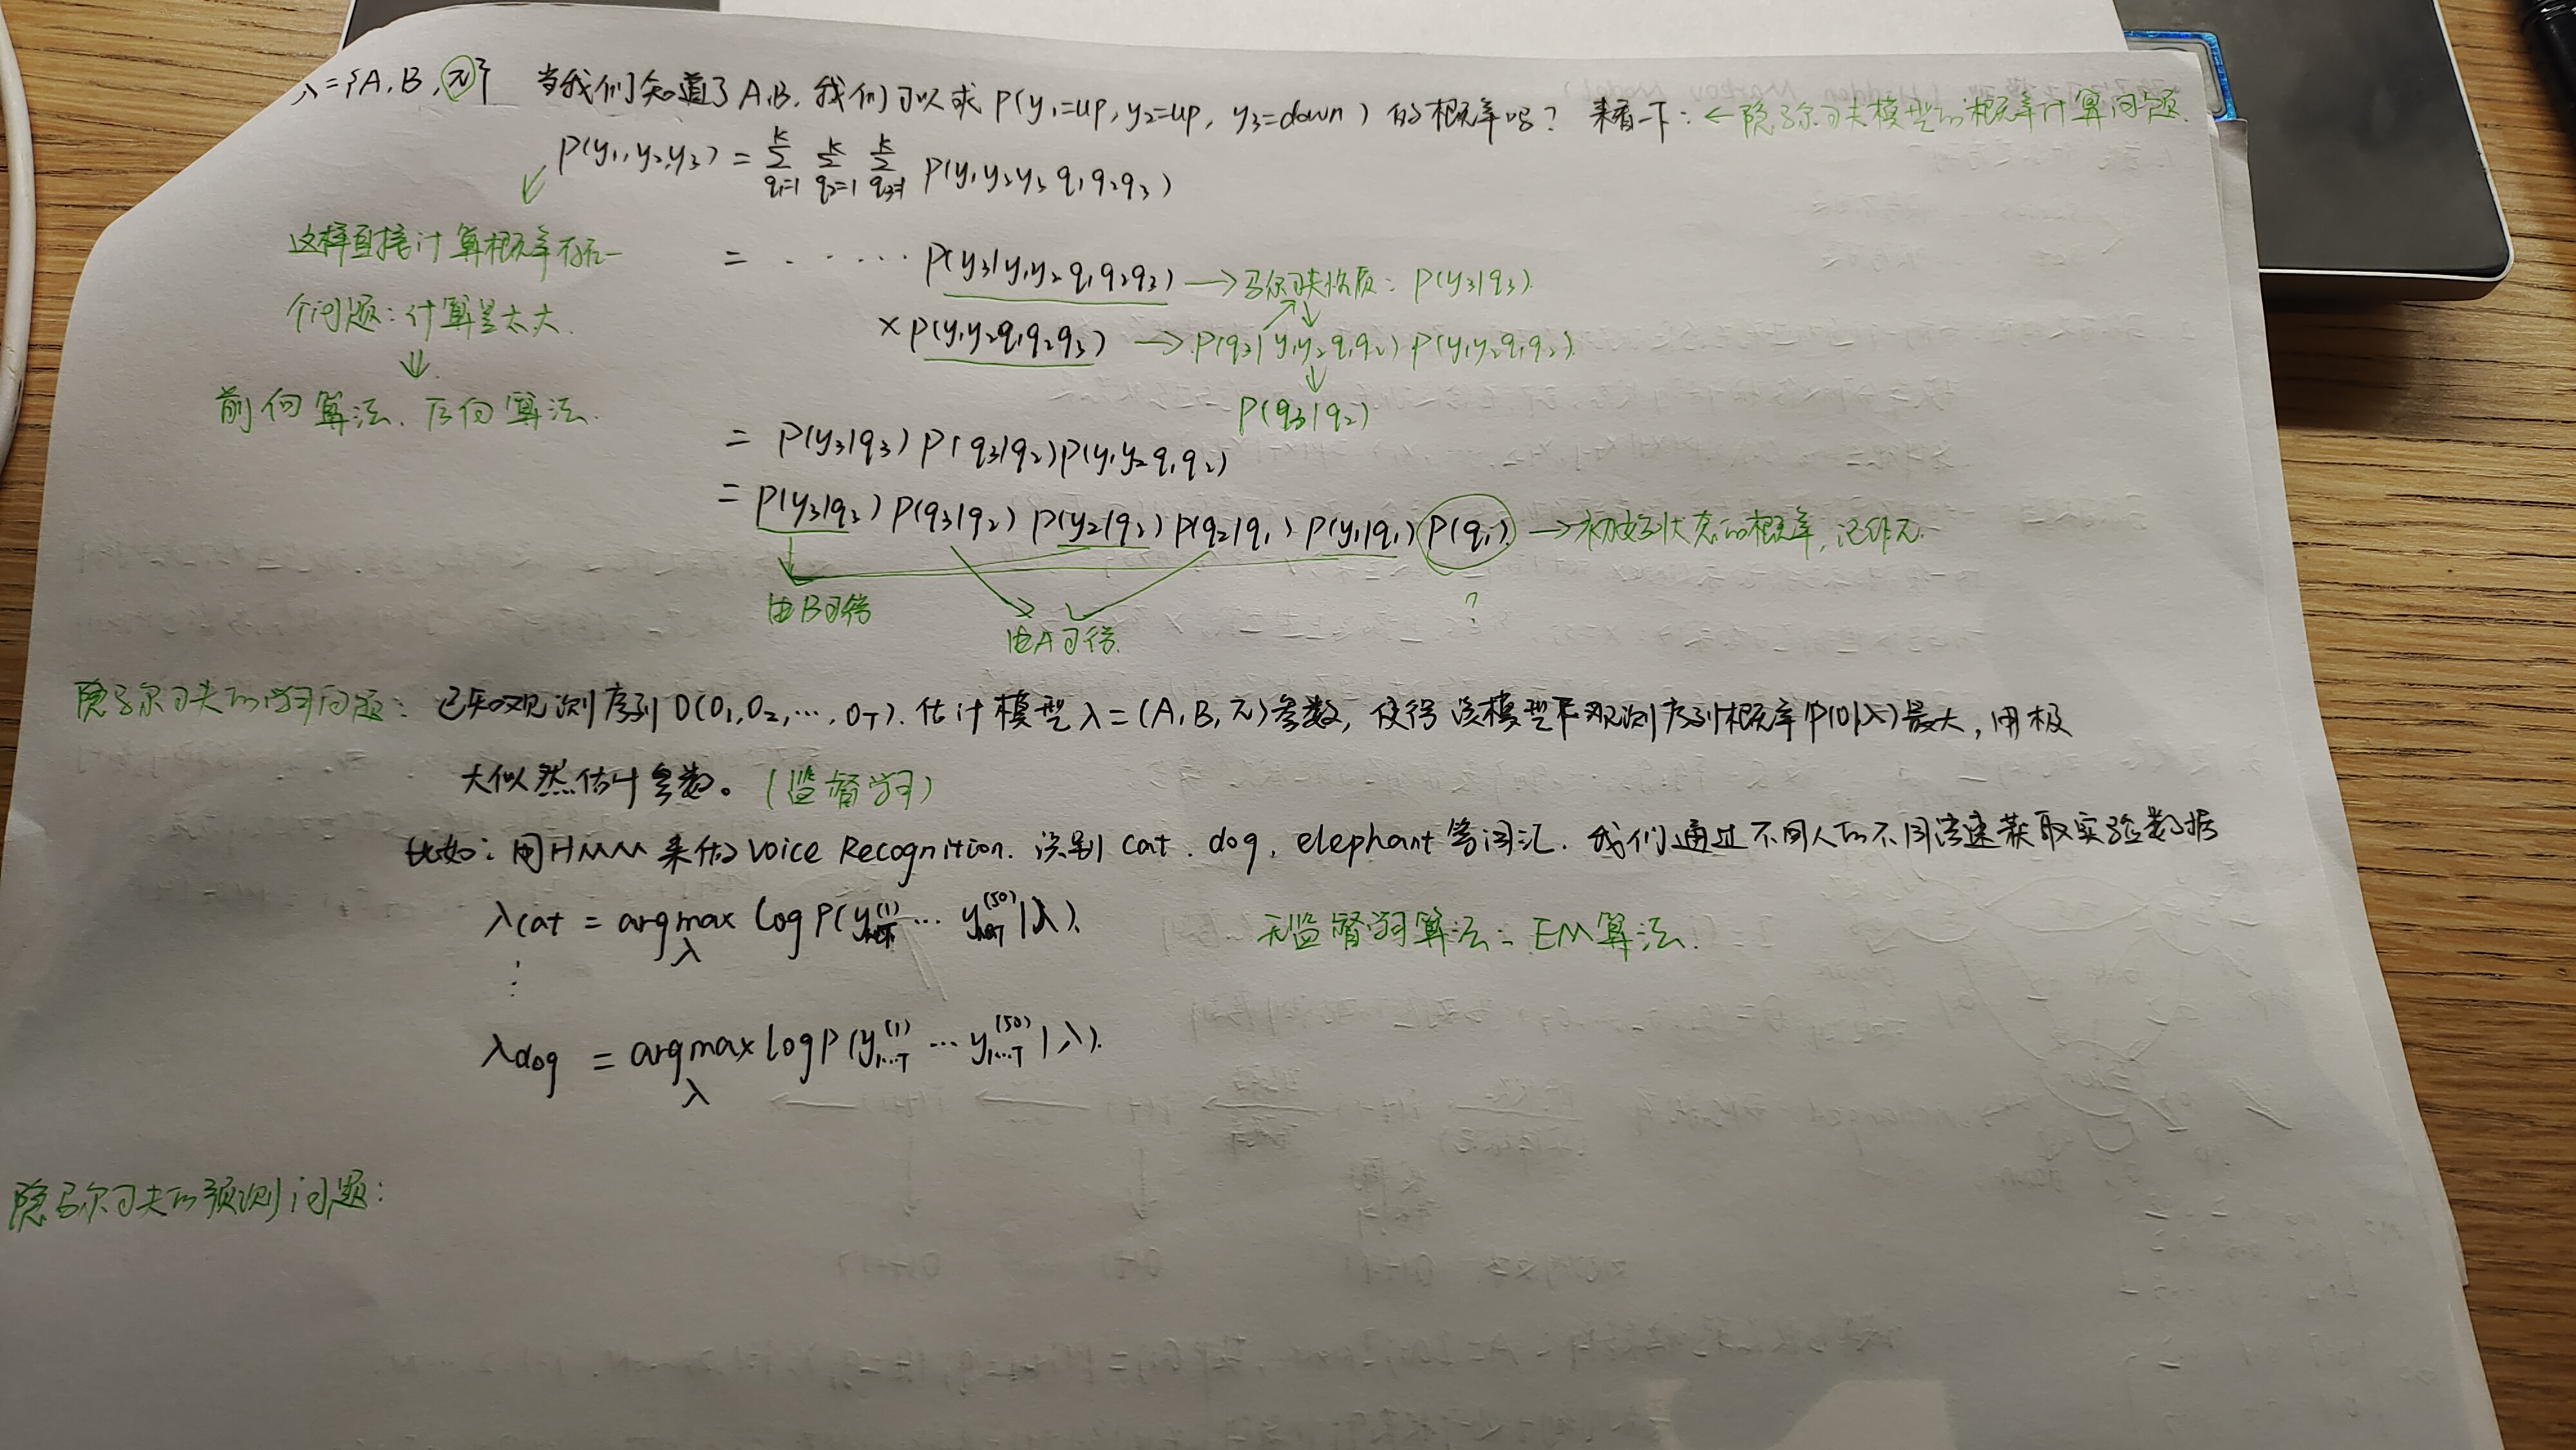 λ={A, B, π} 当我们知道了A,B, 我们可以求 P(y₁=up, y₂=up, y₃=down) 的概率吗? 来看一下: ←隐马尔可夫模型的概率计算问题.
P(y₁,y₂,y₃) = Σ_{q₁=1}^{k} Σ_{q₂=1}^{k} Σ_{q₃=1}^{k} P(y₁y₂y₃q₁q₂q₃)
这样直接计算概率存在一
个问题: 计算量太大.
↓
前向算法、后向算法.
= · · · · · P(y₃|y₁y₂q₁q₂q₃) → 马尔可夫性质: P(y₃|q₃).
× P(y₁y₂q₁q₂q₃) → P(q₃|y₁y₂q₁q₂) P(y₁y₂q₁q₂).
P(q₃|q₂)
= P(y₃|q₃) P(q₃|q₂) P(y₁y₂q₁q₂)
= P(y₃|q₃) P(q₃|q₂) P(y₂|q₂) P(q₂|q₁) P(y₁|q₁) P(q₁) → 初始状态的概率, 记作π.
由B可得
由A可得.
?
隐马尔可夫的学习问题: 已知观测序列O(O₁,O₂,…,O_T). 估计模型λ=(A,B,π)参数, 使得该模型下观测序列概率P(O|λ)最大, 用极
大似然估计参数。(监督学习)
比如: 用HMM来做Voice Recognition. 识别 cat、dog、elephant等词汇. 我们通过不同人的不同语速获取实验数据
λcat = argmax_λ log P(y⁽¹⁾ … y⁽⁵⁰⁾|λ).
无监督学习算法: EM算法.
⋮
λdog = argmax_λ log P(y_{1…T}⁽¹⁾ … y_{1…T}⁽⁵⁰⁾|λ).
隐马尔可夫的预测问题: